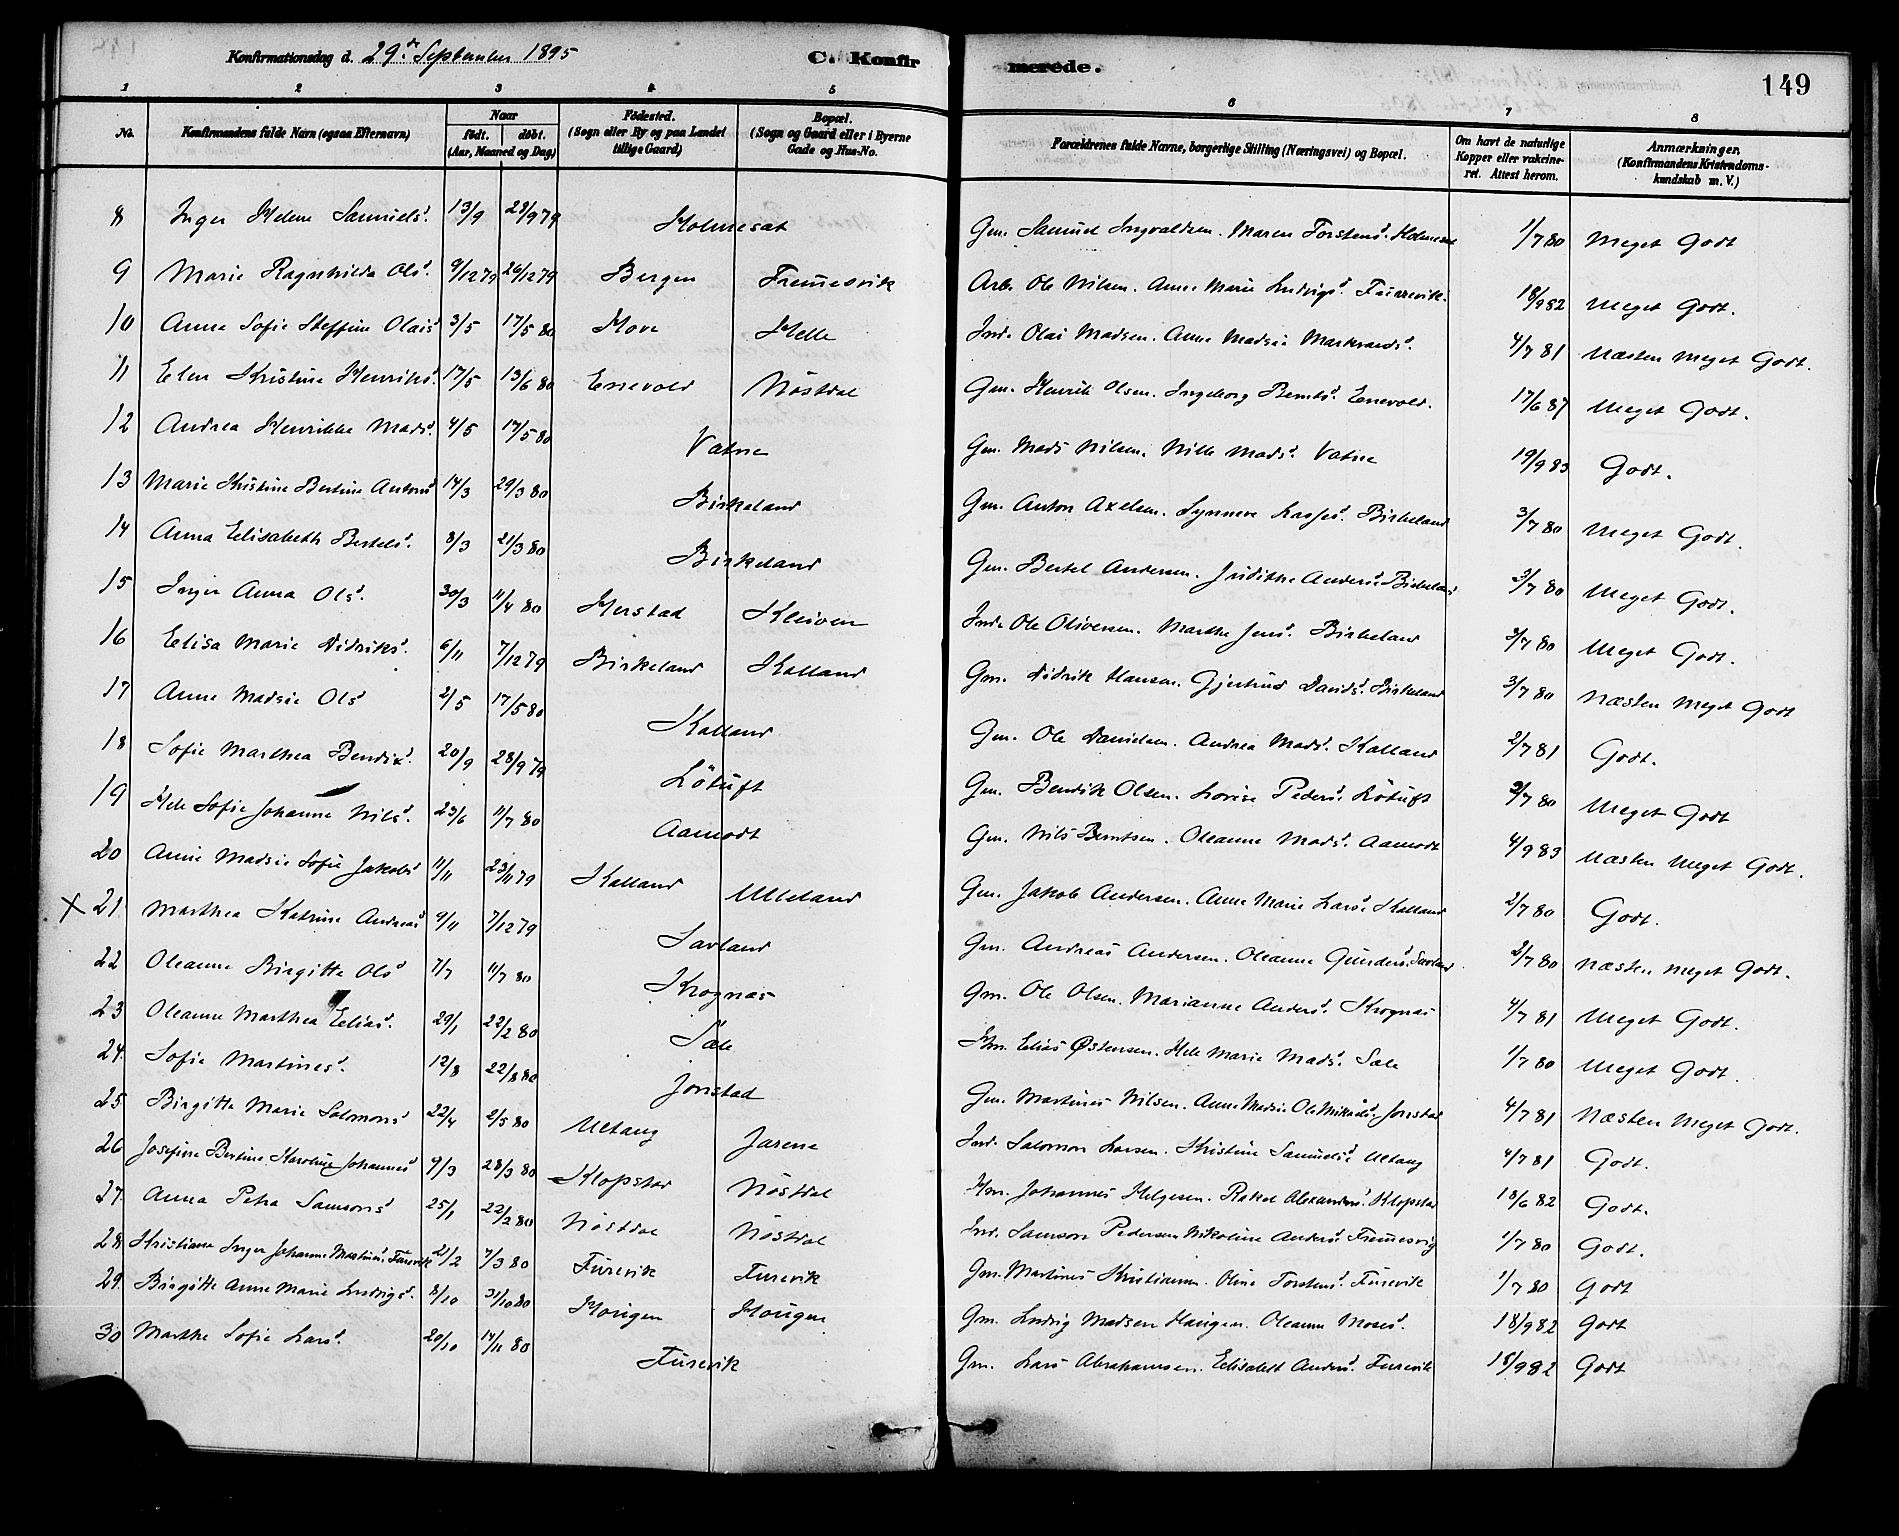 Konfirmationsdag d. 29de September 1895
C. Konfirmerede.
149
1 2 3 4 5 6 7 8
No.
Konfirmandens fulde Navn (ogsaa Efternavn)
Naar
født. døbt.
(Aar, Maaned og Dag)
Fødested.
(Sogn eller By og paa Landet
tillige Gaard)
Bopæl.
(Sogn og Gaard eller i Byerne
Gade og Hus-No.
Forældrenes fulde Navne, borgerlige Stilling (Næringsvei) og Bopæl.
Om havt de naturlige
Kopper eller vakcine-
ret. Attest herom.
Anmærkninger,
(Konfirmandens Kristendoms-
kundskab m. V.)
8 Inger Helene Samuelsd. 13/9 28/9 79 Holmesat Gm. Samuel Ingvaldsen. Maren Torstensd. Holmesat 1/7 80 Meget Godt
9 Marie Ragnhilda Olsd. 9/12 79 26/12 79 Bergen Fremesvik Arb. Ole Nilsen. Anne Marie Ludvigsd. Furevik. 18/9 82 Meget Godt.
10 Anna Sofie Steffine Olaisd. 3/5 17/5 80 Hove Helle Ind. Olai Madsen. Anne Madsie Markvardsd. 4/7 81 Næsten Meget Godt.
11 Elen Kristine Henriksd. 17/5 13/6 80 Enevold Nøstdal Gm. Henrik Olsen. Ingeborg Berntsd. Enevold. 17/6 87 Meget Godt.
12 Andrea Henrikke Madsd. 4/5 17/5 80 Vatne Gm. Mads Nilsen. Nille Madsd. Vatne 19/9 83 Godt.
13 Marie Kristine Bertine Antonsd 14/3 29/3 80 Birkeland Gm. Anton Axelsen. Synneve Lassesd. Birkeland 3/7 80 Meget Godt.
14 Anna Elisabeth Bertelsd. 8/3 21/3 80 Birkeland Gm. Bertel Andersen. Judithe Andersd. Birkeland 3/7 80 Meget Godt.
15 Inger Anna Olsd. 30/3 11/4 80 Herstad Kleiven Ind. Ole Oliversen. Marthe Jensd. Birkeland 3/7 80 Meget Godt.
16 Elisa Marie Didriksd. 6/11 7/12 79 Birkeland Kalland Gm. Didrik Hansen. Gjertrud Davidsd. Birkeland 3/7 80 Næsten Meget Godt
17 Anne Madsie Olsd 2/5 17/5 80 Kalland Gm. Ole Danielsen. Andrea Madsd. Kalland 2/7 81 Godt.
18 Sofie Marthea Bendixd. 20/9 28/9 79 Løtuft Gm. Bendik Olsen. Lovise Pedersd. Løtuft 3/7 80 Meget Godt
19 Hele Sofie Johanne Nilsd. 23/6 11/7 80 Aamodt Gm. Nils Berntsen. Oleanne Madsd. Aamodt 4/9 83 Næsten Meget Godt.
20 Anne Madsie Sofie Jakobsd 11/11 23/11 79 Kalland Ulleland Gm. Jakob Andersen. Anne Marie Larsd. Kalland 2/7 80 Godt.
x 21 Marthea Katrine Andreasd 9/11 7/12 79 Savland Gm. Andreas Andersen. Oleanne Gundersd. Savland 2/7 80 Næsten Meget Godt.
22 Oleanne Birgitte Olsd 7/7 11/7 80 Krognæs Gm. Ole Olsen. Marianne Andersd. Krognæs 4/7 81 Meget Godt.
23 Oleanne Marthea Eliasd. 29/1 22/2 80 Sæle Hm. Elias Østensen. Hele Marie Madsd. Sæle 1/7 80 Meget Godt.
24. Sofie Martinesd. 12/8 22/8 80 Jonstad Gm. Martines Nilsen. Anne Madsie Ole Mikalsd. Jonstad 4/7 81 Næsten Meget Godt.
25 Birgitte Marie Salomonsd 22/4 2/5 80 Ullang Jarene Ind. Salomon Larsen. Kristine Samuelsd. Ullang 4/7 81 Godt.
26 Josefine Bertine Karoline Johannesd 9/3 28/3 80 Klopstad Nøstdal Hm. Johannes Helgesen. Rakel Alexandersd. Klopstad 18/6 82 Godt.
27. Anna Petra Samsonsd 25/1 22/2 80 Nøstdal Nøstdal Ind. Samson Pedersen Nikoline Andersd. Fremesvig 1/7 80 Godt.
28 Kristiane Inger Johanne Martinusd. Furevik 21/2 7/3 80 Furevik Furevik Gm. Martines Kristiansen. Oline Torstensd. Furevik 1/7 80 Godt
29. Birgitte Anne Marie Ludvigsd. 8/10 31/10 80 Hougen Hougen Gm. Ludvig Madsen Haugen. Oleanne Mosesd. 18/9 82 Godt
30 Marthe Sofie Larsd. 20/10 14/11 80 Furevik Gm. Lars Abrahamsen. Elisabeth Andersd. Furevik 18/9 82 Godt